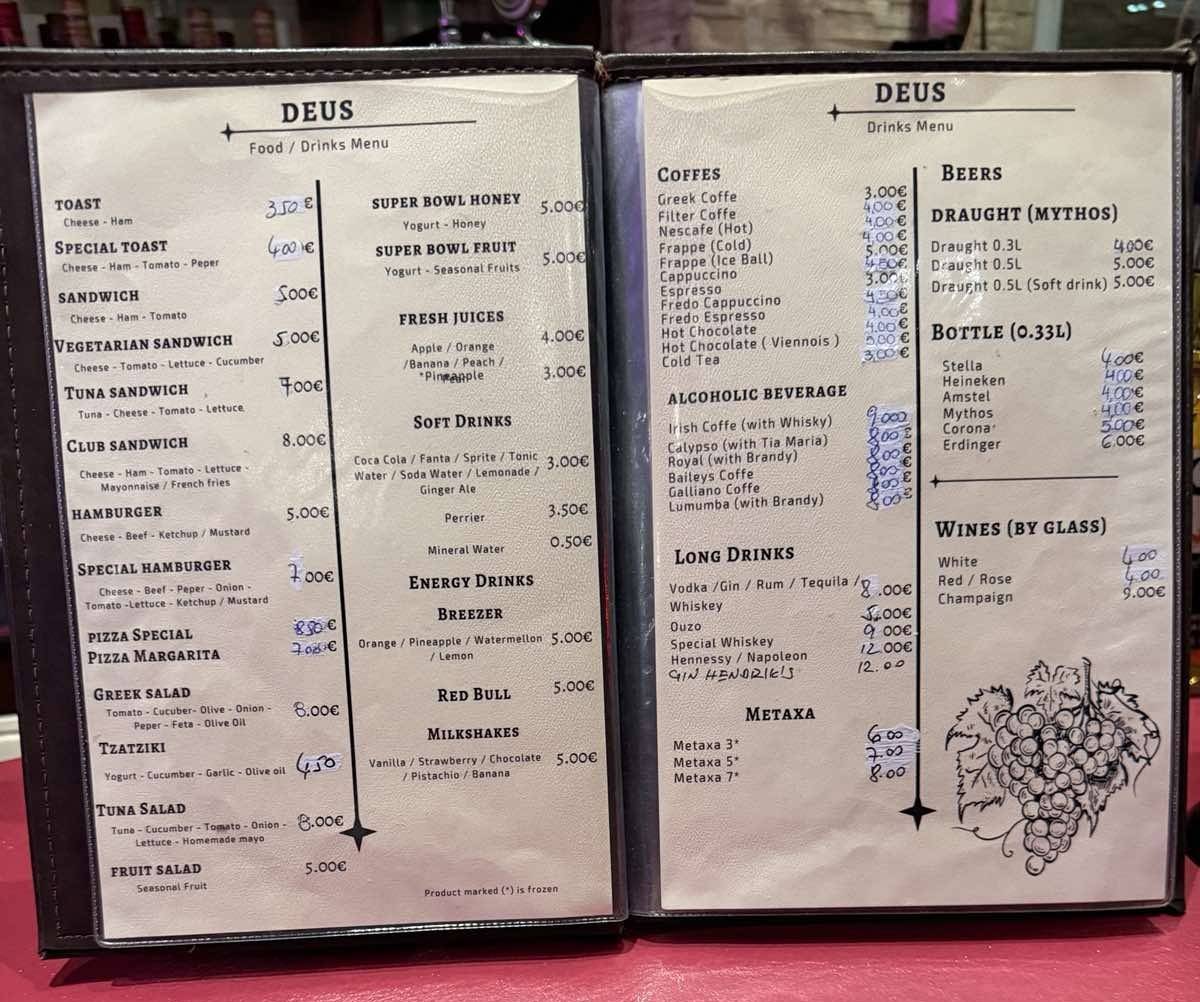 DEUS
Food / Drinks Menu
TOAST 3.50 €
Cheese - Ham
SPECIAL TOAST 4.00 €
Cheese - Ham - Tomato - Peper
SANDWICH 5.00€
Cheese - Ham - Tomato
VEGETARIAN SANDWICH 5.00€
Cheese - Tomato - Lettuce - Cucumber
TUNA SANDWICH 7.00€
Tuna - Cheese - Tomato - Lettuce
CLUB SANDWICH 8.00€
Cheese - Ham - Tomato - Lettuce -
Mayonnaise / French fries
HAMBURGER 5.00€
Cheese - Beef - Ketchup / Mustard
SPECIAL HAMBURGER 7.00€
Cheese - Beef - Peper - Onion -
Tomato -Lettuce - Ketchup / Mustard
PIZZA SPECIAL 8.50 €
PIZZA MARGARITA 7.00€
GREEK SALAD
Tomato - Cucuber- Olive - Onion - 8.00€
Peper - Feta - Olive Oil
TZATZIKI
Yogurt - Cucumber - Garlic - Olive oil 4.50
TUNA SALAD
Tuna - Cucumber - Tomato - Onion - 8.00€
Lettuce - Homemade mayo
FRUIT SALAD 5.00€
Seasonal Fruit
SUPER BOWL HONEY 5.00€
Yogurt - Honey
SUPER BOWL FRUIT 5.00€
Yogurt - Seasonal Fruits
FRESH JUICES
Apple / Orange 4.00€
/Banana / Peach /
*Pineapple 3.00€
SOFT DRINKS
Coca Cola / Fanta / Sprite / Tonic 3.00€
Water / Soda Water / Lemonade /
Ginger Ale
Perrier 3.50€
Mineral Water 0.50€
ENERGY DRINKS
BREEZER
Orange / Pineapple / Watermellon 5.00€
/ Lemon
RED BULL 5.00€
MILKSHAKES
Vanilla / Strawberry / Chocolate 5.00€
/ Pistachio / Banana
Product marked (*) is frozen
DEUS
Drinks Menu
COFFES
Greek Coffe 3.00€
Filter Coffe 4,00 €
Nescafe (Hot) 4,00 €
Frappe (Cold) 4,00 €
Frappe (Ice Ball) 5.00€
Cappuccino 4.50€
Espresso 3.00€
Fredo Cappuccino 4.50€
Fredo Espresso 4.00€
Hot Chocolate 4.00€
Hot Chocolate ( Viennois ) 5.00€
Cold Tea 3,00€
ALCOHOLIC BEVERAGE
Irish Coffe (with Whisky)
Calypso (with Tia Maria) 8.00 €
Royal (with Brandy) 8.00€
Baileys Coffe 8.00€
Galliano Coffe €
Lumumba (with Brandy) 8.00€
LONG DRINKS
Vodka /Gin / Rum / Tequila / 8.00€
Whiskey
Ouzo 5.00€
Special Whiskey 9.00€
Hennessy / Napoleon 12.00€
GIN HENDRIK'S 12.00
METAXA
Metaxa 3* 6.00
Metaxa 5* 7.00
Metaxa 7* 8.00
BEERS
DRAUGHT (MYTHOS)
Draught 0.3L 4.00€
Draught 0.5L 5.00€
Draught 0.5L (Soft drink) 5.00€
BOTTLE (0.33L)
Stella 4.00€
Heineken 4.00€
Amstel 4,00€
Mythos 4,00€
Corona 5.00€
Erdinger 6.00€
WINES (BY GLASS)
White 4.00
Red / Rose 4.00
Champaign 9.00€